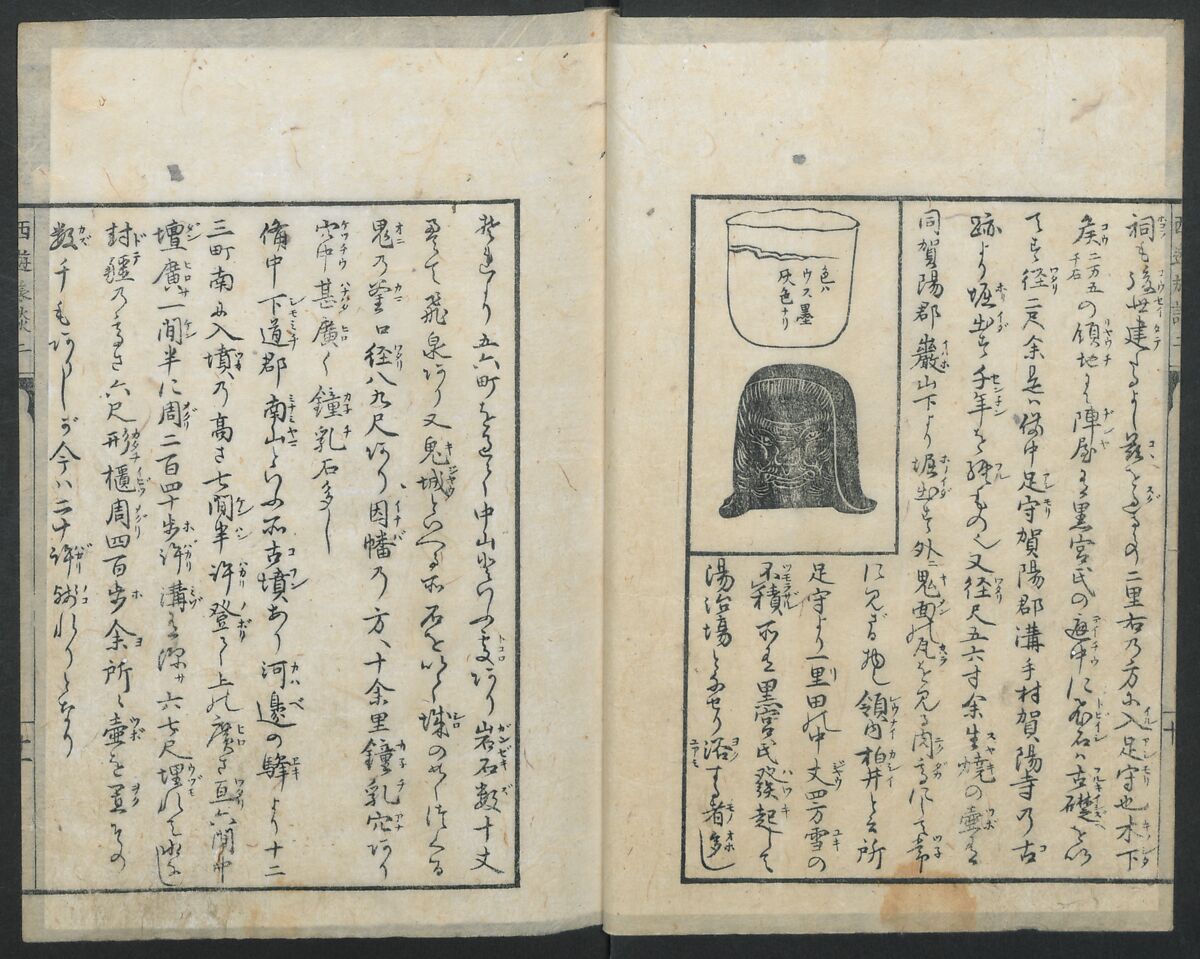 祠も後世建たるよし茲をすぐるの二里右の方に入足守也木下
侯二万五千石の領地にて陣屋は黒宮氏の庭中に飛石は古礎を以
てす径二尺余是は備中足守賀陽郡溝手村賀陽寺の古
跡より堀出す千年を経もの也又径尺五六寸余生焼の壺は
同賀陽郡巌山下より堀出す外ニ鬼面の瓦を見る肉高にして常
に見ざる物也領内柏井と云所
足守より一里田の中丈四方雪の
不積所は黒宮氏發起して
湯治場となせり浴する者多し
色ハ
ウス墨
灰色ナリ
それより五六町を過て中山といふ處あり岩石数十丈
にて飛泉あり又鬼城といへる所石を以て城のやうにつくる
鬼の釜口径八九尺あり因幡の方へ十余里鐘乳穴あり
穴中甚廣く鐘乳石多し
備中下道郡南山といふ所古墳あり河邊の驛より十二
三町南に入墳の高さ七間半許登りて上の廣さ亘六間中
壇廣サ一間半に周二百四十歩許溝は深サ六七尺埋れて
封疆の高さ六尺形櫃周四百歩余所〻壷を置その
数千もありしが今ハ二十許残れりとなり